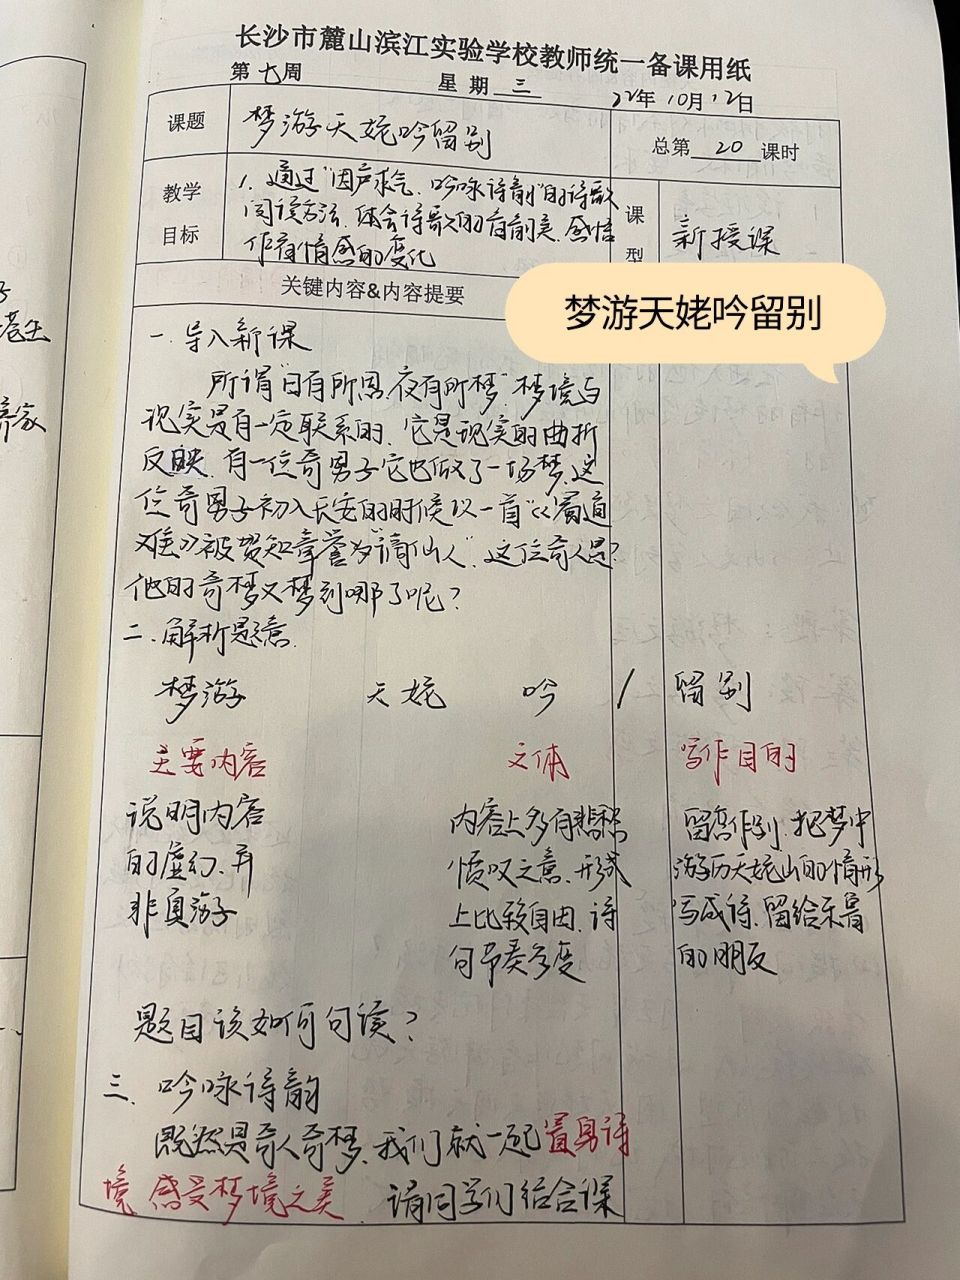 长沙市麓山滨江实验学校教师统一备课用纸
第 七 周 星期 三 22年 10月 12日
课题 梦游天姥吟留别 总第 20 课时
教学目标 1. 通过“因声求气、吟咏诗韵”的诗歌
阅读方法,体会诗歌的音韵美,感悟
作者情感的变化
课型 新授课
关键内容&内容提要
梦游天姥吟留别
一.导入新课
所谓“日有所思,夜有所梦”梦境与
现实是有一定联系的,它是现实的曲折
反映,有一位奇男子它也做了一场梦,这
位奇男子初入长安的时候以一首“《蜀道
难》”被贺知章誉为“谪仙人”,这位奇人是?
他的奇梦又梦到哪了呢?
二.解析题意
梦游 天姥 吟 / 留别
主要内容 文体 写作目的
说明内容
的虚幻,并
非真游
内容上多有悲愁
愤叹之意,形式
上比较自由,诗
句节奏多变
留恋作别,把梦中
游历天姥山的情形
写成诗,留给东鲁
的朋友
题目该如何句读?
三.吟咏诗韵
既然是奇人奇梦,我们就一起置身诗
境,感受梦境之美.请同学们结合课